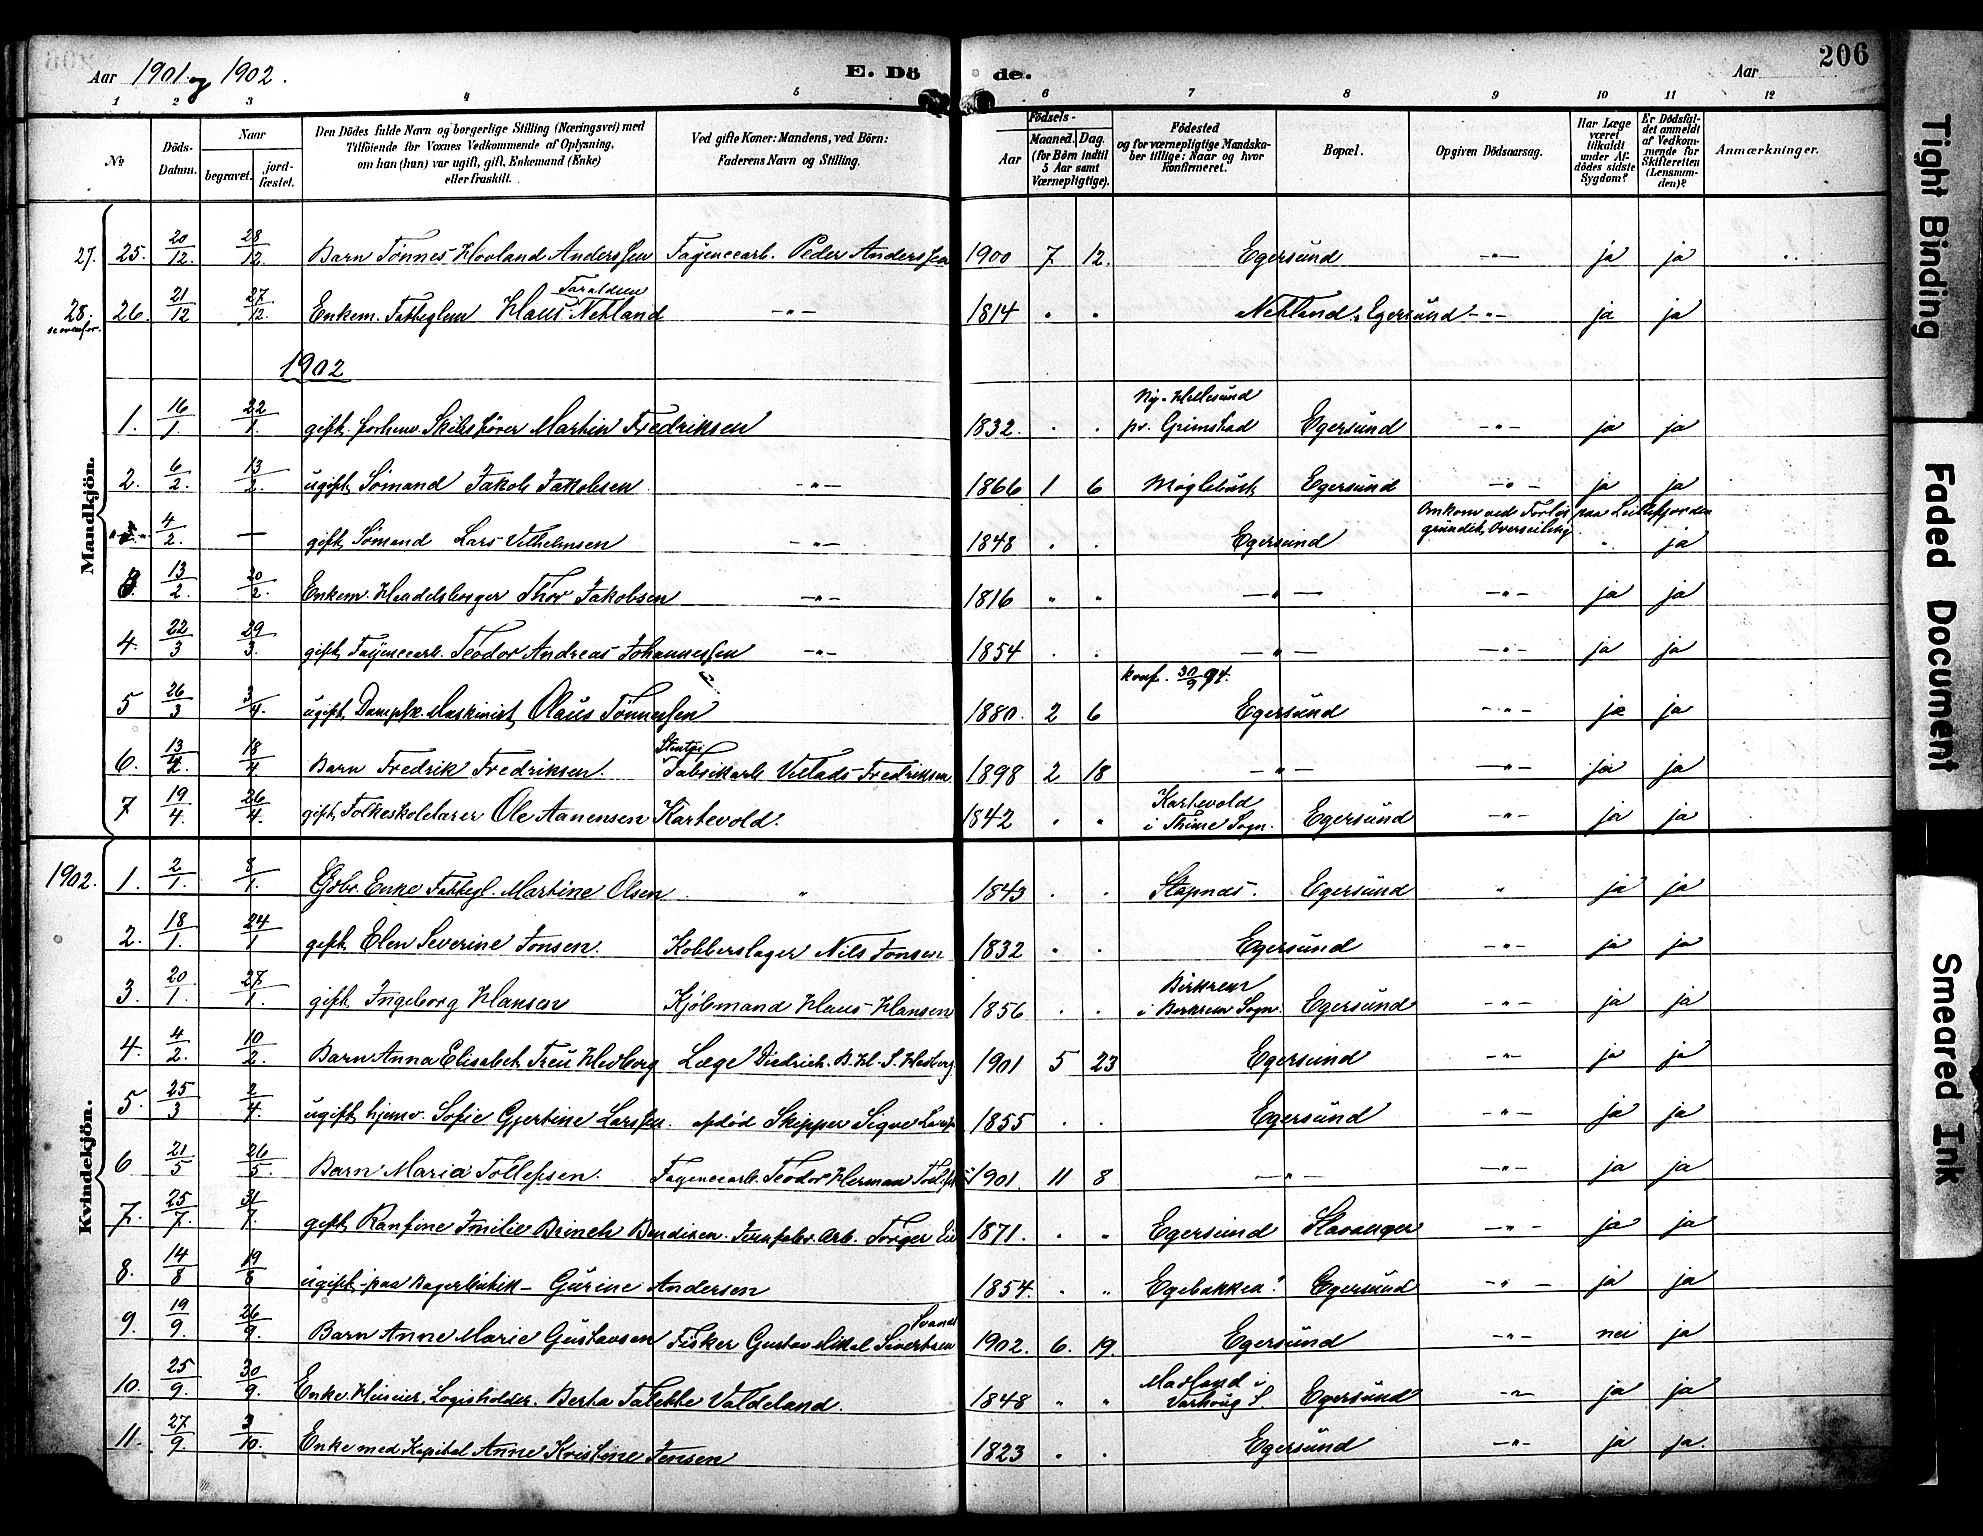 206
Aar 1901 og 1902.
E. Dö de.
Aar
1 2 3 4 5 6 7 8 9 10 11 12
No
Döds-Datum.
Naar begravet. jordfæstet.
Den Dödes fulde Navn og borgerlige Stilling (Næringsvei) med Tilföiende for Voxnes Vedkommende af Oplysning, om han (hun) var ugift, gift, Enkemand (Enke) eller fraskilt.
Ved gifte Koner: Mandens, ved Börn: Faderens Navn og Stilling.
Födsels-
Aar Maaned. Dag. (for Börn indtil 5 Aar samt Værnepligtige).
Födested og for værnepligtige Mandskaber tillige: Naar og hvor konfirmeret.
Bopæl.
Opgiven Dödsaarsag.
Har Læge været tilkaldt under Afdödes sidste Sygdom?
Er Dödsfaldet anmeldt af Vedkommende for Skifteretten (Lensmanden)?
Anmærkninger.
Mandkjön.
27. 25. 20/12 28/12 Barn Tönnes Hovland Anderssen Fayencearb. Peder Anderssen 1900 7 12. Egersund -"- ja ja
28. 26. 21/12 27/12 Enkem. Fattiglem Klaus Taraldsen Netland -"- 1814 " " Netland, Egersund -"- ja ja
1902
1. 16/1 22/1 gift, forhenv. Skibsförer Martin Fredriksen 1832. Ny-Hellesund pr. Grimstad Egersund -"- ja ja
2. 6/2 13/2 ugift Sömand Jakob Jakobsen -"- 1866 1 6 Möglebust Egersund -"- ja ja
4/2 — gift, Sömand Lars Vilhelmsen -"- 1848 Egersund Omkom ved Forlis paa grundet Overseiling ja
3. 13/2 20/2 Enkem. Handelsborger Thor Jakobsen -"- 1816 " " -"- -"- ja ja
4. 22/3 29/3 gift, Fayencearb. Teodor Andreas Johannessen -"- 1854 -"- -"- ja ja
5 26/3 3/4 ugift, Dampsk. Maskinist, Olaus Tönnessen 1880. 2 6 konf. 30/9 94. Egersund -"- ja ja
6. 13/4 18/4 Barn Fredrik Fredriksen. Stentöi Fabrikarb. Villads Fredriksen 1898 2 18 -"- -"- ja ja
7 19/4 26/4 gift, Folkeskolelærer Ole Aanensen Kartevold. 1842 " " Kartevold i Thime Sogn. Egersund -"- ja ja
Kvindekjön.
1902. 1. 2/1 8/1 Enke Fattigl. Martine Olsen " 1843 Stapnæs. Egersund " ja ja
2. 18/1 24/1 gift, Elen Severine Jonsen. Kobberslager Nils Jonsen 1832 Egersund -"- ja ja
3. 20/1 27/1 gift, Ingeborg Hansen Kjöbmand Klaus Hansen 1856 Birkrem i Birkrem Sogn. Egersund -"- ja ja
4. 4/2 10/2 Barn Anna Elisabet Treu Hedberg Læge Diedrich. B. H. S. Hedberg 1901 5 23 Egersund -"- ja ja
5. 25/3 2/4 ugift hjemv. Sofie Gjertine Larssen. afdöd Skipper Sigve 1855 Egersund -"- ja ja
6 21/5 26/5 Barn Maria Tollefsen. Fayencearb. Teodor Herman 1901. 11 8 -"- -"- ja ja
7. 25/7 31/7 gift, Ranfine Emilie Brinch Bendixen. Arb. Torger 1871. " Egersund Stavanger -"- ja ja
8. 14/8 19/8 ugift, paa Bagerbutik - Gurine Andersen 1854. " Egebakken? Egersund -"- ja ja
9. 19/9 26/9 Barn Anne Marie Gustavsen Fisker Gustav Mikal Sivertsen 1902. 6. 19. Egersund -"- nei ja
10. 25/9 30/9 Enke. Huseier, Logisholder. Berta Talette Valdeland. 1848 " " Madland i Varhoug S. Egersund -"- ja ja
11. 27/9 3/10. Enke med Kapital Anne Kristine Jensen 1823 Egersund -"- ja ja.
Tight Binding
Faded Document
Smeared Ink